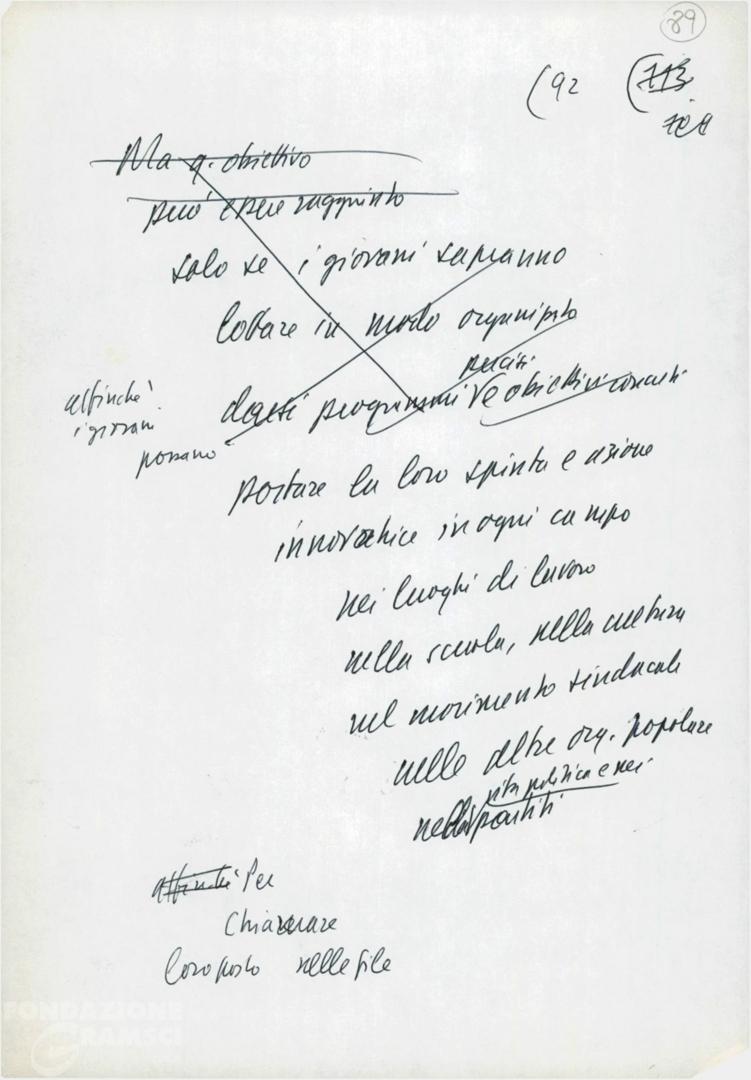 89
(92
(113
Ma q. obiettivo
può essere raggiunto
solo se i giovani sapranno
lottare in modo organizzato
precisi
darsi programmi e obiettivi concreti
affinché
i giovani
possano
portare la loro spinta e azione
innovatrice in ogni campo
nei luoghi di lavoro
nella scuola, nella cultura
nel movimento sindacale
nelle altre org. popolari
vita politica e nei
nella partiti
affinché Per
Chiamare
loro posto nelle file
FONDAZIONE
GRAMSCI